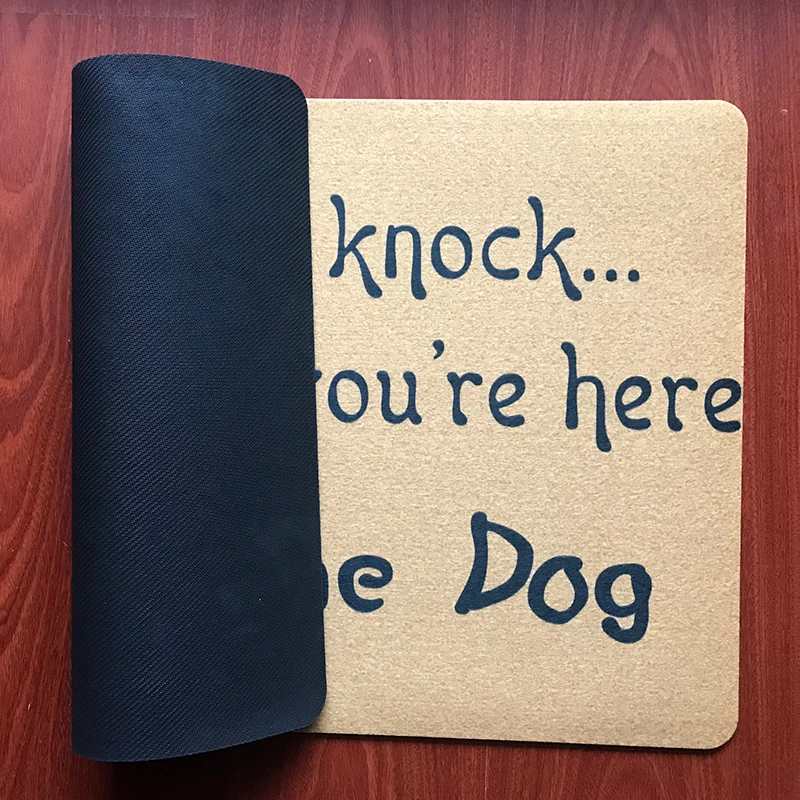 knock...
you're here
Dog